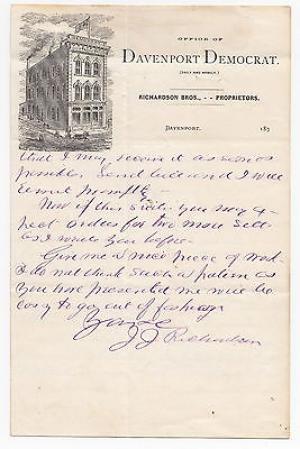 OFFICE OF
DAVENPORT DEMOCRAT.
(DAILY AND WEEKLY.)
RICHARDSON BROS., - - PROPRIETORS.
DAVENPORT, 187
that I may receive it as soon as
possible. Send bill and I will
remit promptly.
Now if this suits you may ex-
pect orders for two more setts
as I wrote you before.
Give me a nice piece of work.
I do not think such a pattern as
you have presented me will be
easy to go out of fashion
Yours
J J Richardson